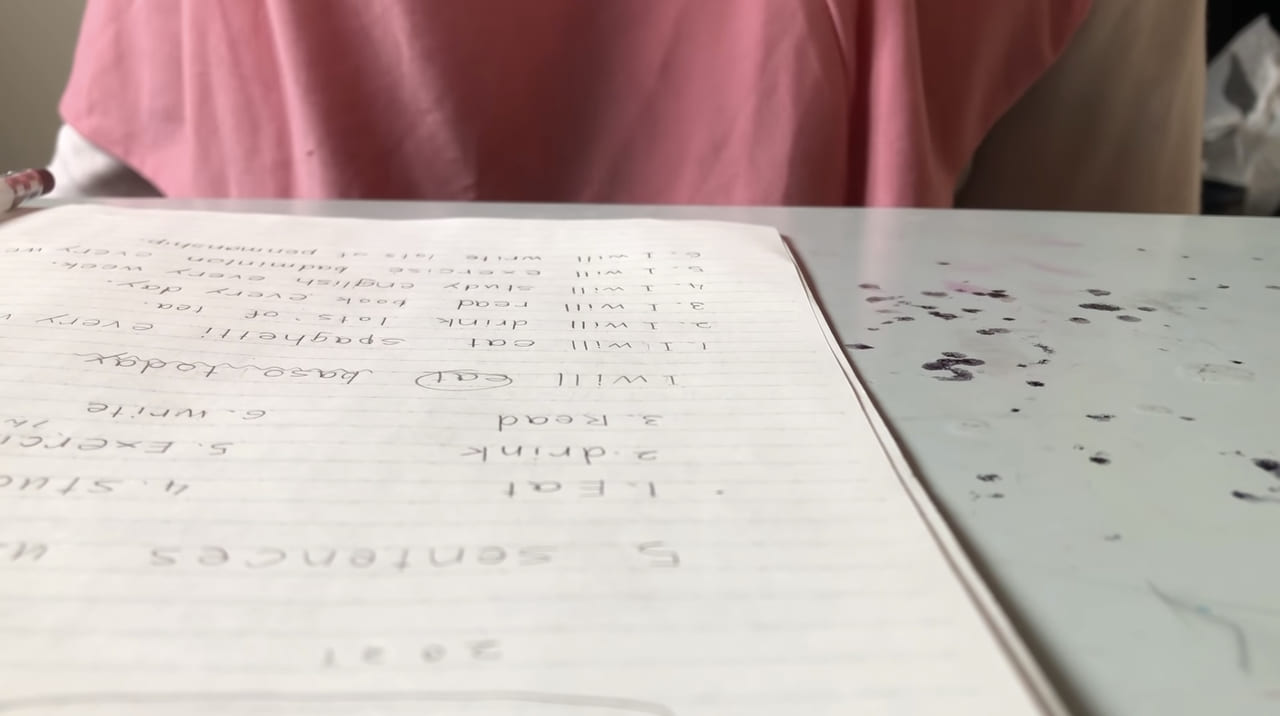 2021
5 sentences u
1. Eat 4. Stud
2. drink 5. Exerci
3. Read 6. write
I will eat today
1. I will eat spaghetti every w
2. I will drink lots of tea.
3. I will read book every day.
4. I will study english every week.
5. I will exercise badminton every we
6. I will write lots of penmanship.